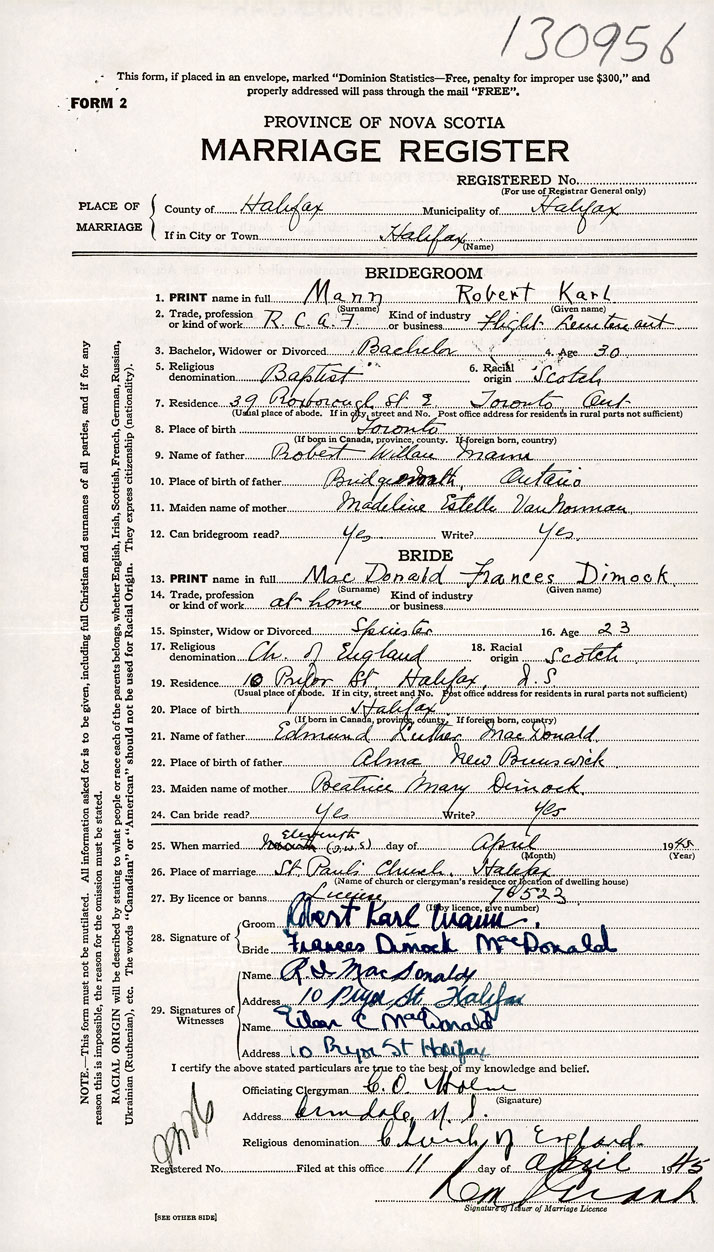 130956
This form, if placed in an envelope, marked "Dominion Statistics—Free, penalty for improper use $300," and
properly addressed will pass through the mail "FREE".
FORM 2
PROVINCE OF NOVA SCOTIA
MARRIAGE REGISTER
REGISTERED No.
(For use of Registrar General only)
PLACE OF MARRIAGE
County of Halifax Municipality of Halifax
If in City or Town Halifax
(Name)
BRIDEGROOM
1. PRINT name in full Mann Robert Karl
(Surname) (Given name)
2. Trade, profession or kind of work R.C.A.F. Kind of industry or business Flight Lieutenant
3. Bachelor, Widower or Divorced Bachelor 4. Age 30
5. Religious denomination Baptist 6. Racial origin Scotch
7. Residence 39 Roxborough St E Toronto Ont
(Usual place of abode. If in city, street and No. Post office address for residents in rural parts not sufficient)
8. Place of birth Toronto
(If born in Canada, province, county. If foreign born, country)
9. Name of father Robert Mann
10. Place of birth of father Ontario
11. Maiden name of mother Madeline Estelle VanNorman
12. Can bridegroom read? Yes Write? Yes.
BRIDE
13. PRINT name in full MacDonald Frances Dimock
(Surname) (Given name)
14. Trade, profession or kind of work at home Kind of industry or business
15. Spinster, Widow or Divorced Spinster 16. Age 23
17. Religious denomination Ch. of England 18. Racial origin Scotch
19. Residence 10 Pryor St. Halifax, N.S
(Usual place of abode. If in city, street and No. Post office address for residents in rural parts not sufficient)
20. Place of birth Halifax
(If born in Canada, province, county. If foreign born, country)
21. Name of father Edmund Luther MacDonald
22. Place of birth of father Alma New Brunswick
23. Maiden name of mother Beatrice Mary Dimock
24. Can bride read? Yes Write? Yes
25. When married Eleventh day of April 1945
(Month) (Year)
26. Place of marriage St. Paul's Church, Halifax
(Name of church or clergyman's residence or location of dwelling house)
27. By licence or banns License 76523
(If by licence, give number)
28. Signature of
Groom Robert Karl Mann.
Bride Frances Dimock MacDonald
29. Signatures of Witnesses
Name MacDonald
Address 10 Pryor St. Halifax
Name C MacDonald
Address 10 Pryor St Halifax
I certify the above stated particulars are true to the best of my knowledge and belief.
Officiating Clergyman C. O.
(Signature)
Address Armdale, N.S.
Religious denomination Church of England.
Registered No. Filed at this office 11 day of April 1945
Signature of Issuer of Marriage Licence
[SEE OTHER SIDE]
NOTE.—This form must not be mutilated. All information asked for is to be given, including full Christian and surnames of all parties, and if for any
reason this is impossible, the reason for the omission must be stated.
RACIAL ORIGIN will be described by stating to what people or race each of the parents belongs, whether English, Irish, Scottish, French, German, Russian,
Ukrainian (Ruthenian), etc. The words "Canadian" or "American" should not be used for Racial Origin. They express citizenship (nationality).